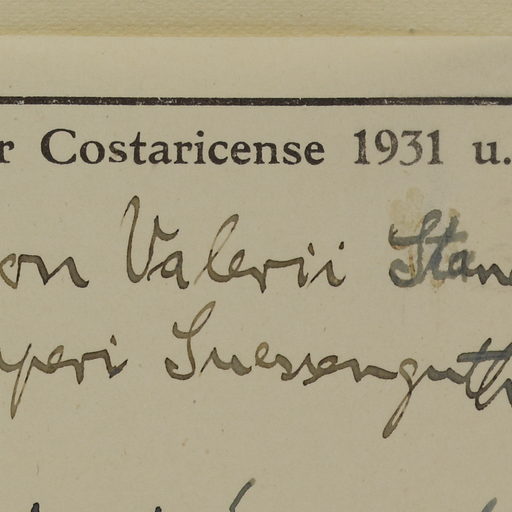 r Costaricense 1931 u.
on Valerii Stan
yperi Suessenguth